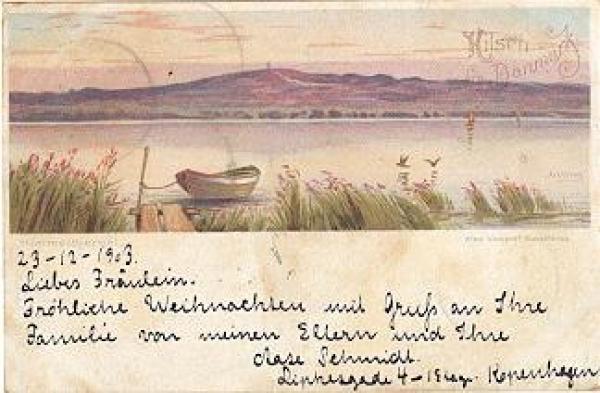 Hilsen
fra Danmark
Himmelbjerget
23-12-1903.
Liebes Fräulein.
Fröhliche Weihnachten mit Gruß an Ihre
Familie von meinen Eltern und Ihre
Aase Schmidt.
4 - 1 Etage. Kopenhagen